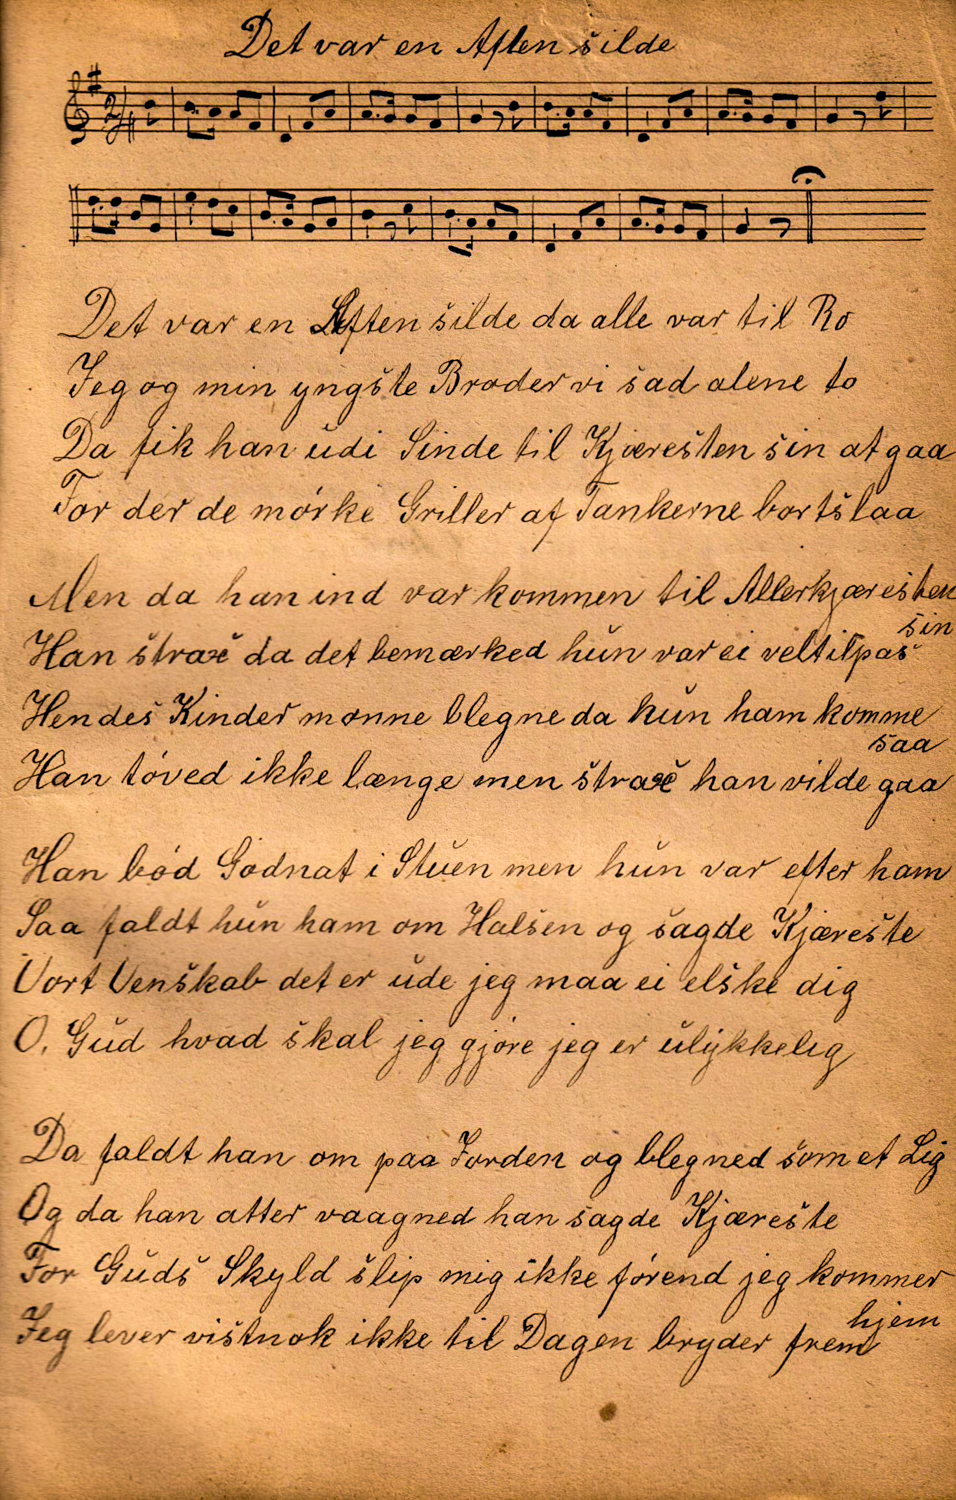 Det var en Aften silde
Det var en Aften silde da alle var til Ro
Jeg og min yngste Broder vi sad alene to
Da fik han udi Sinde til Kjæresten sin at gaa
For der de mørke Griller af Tankerne bortslaa
Men da han ind var kommen til Allerkjæresten
sin
Han strax da det bemærked hun var ei veltilpas
Hendes Kinder monne blegne da hun ham komme
saa
Han tøved ikke længe men strax han vilde gaa
Han bød Godnat i Stuen men hun var efter ham
Saa faldt hun ham om Halsen og sagde Kjæreste
Vort Venskab det er ude jeg maa ei elske dig
O, Gud hvad skal jeg gjøre jeg er ulykkelig
Da faldt han om paa Jorden og blegned som et Lig
Og da han atter vaagned han sagde Kjæreste
For Guds Skyld slip mig ikke førend jeg kommer
hjem
Jeg lever vistnok ikke til Dagen bryder frem